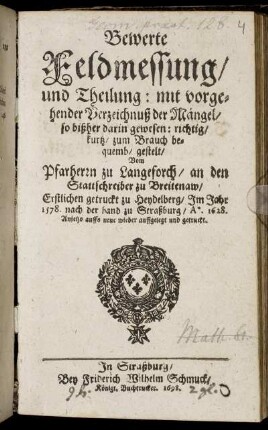 Bewerte
Feldmessung/
und Theilung: mit vorge-
hender Verzeichnuß der Mängel/
so bißher darin gewesen: richtig/
kurtz/ zum Brauch be-
quemb/ gestelt/
Vom
Pfarherrn zu Langeforch/ an den
Stattschreiber zu Breitenaw/
Erstlichen getruckt zu Heydelberg/ Im Jahr
1578. nach der hand zu Straßburg/ A°. 1628.
Anjetzo auffs neue wieder auffgelegt und getruckt.
Math.
In Straßburg/
Bey Friderich Wilhelm Schmuck/
Königl. Buchtrucker. 1698.